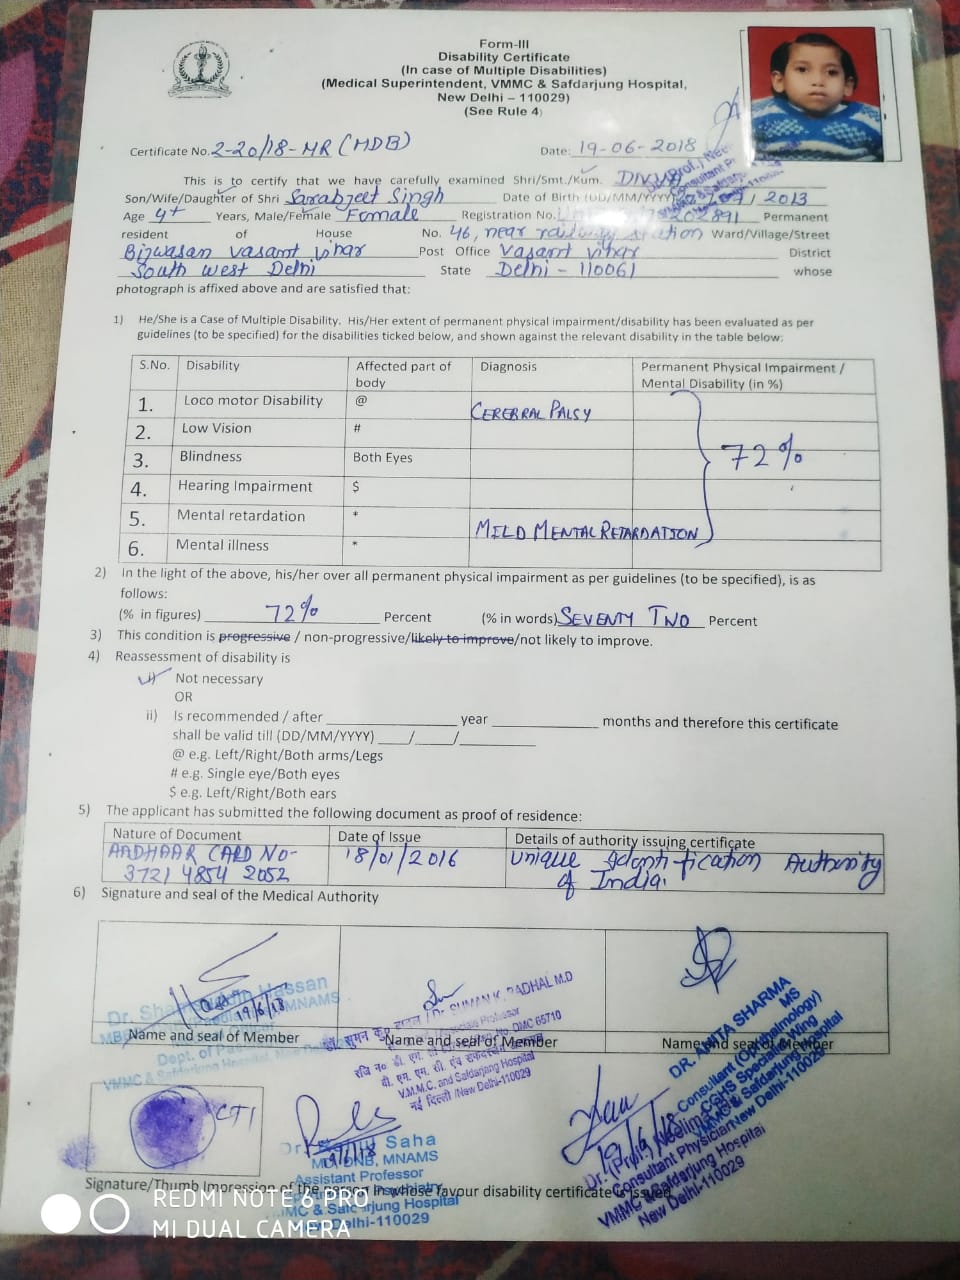 Form-III
Disability Certificate
(In case of Multiple Disabilities)
(Medical Superintendent, VMMC & Safdarjung Hospital,
New Delhi – 110029)
(See Rule 4)
Certificate No. 2-20/18-MR (MDB) Date: 19-06-2018
This is to certify that we have carefully examined Shri/Smt./Kum.
Son/Wife/Daughter of Shri Sarabjeet Singh Date of Birth (DD/MM/YYYY) 2013
Age 4+ Years, Male/Female Female Registration No. 202891 Permanent
resident of House No. 46, near railway station Ward/Village/Street
Bijwasan vasant vihar Post Office Vasant vihar District
South west Delhi State Delhi - 110061 whose
photograph is affixed above and are satisfied that:
1) He/She is a Case of Multiple Disability. His/Her extent of permanent physical impairment/disability has been evaluated as per
guidelines (to be specified) for the disabilities ticked below, and shown against the relevant disability in the table below:
S.No. Disability Affected part of body Diagnosis Permanent Physical Impairment / Mental Disability (in %)
1. Loco motor Disability @ CEREBRAL PALSY
2. Low Vision #
3. Blindness Both Eyes 72%
4. Hearing Impairment $
5. Mental retardation * MILD MENTAL RETARDATION
6. Mental illness *
2) In the light of the above, his/her over all permanent physical impairment as per guidelines (to be specified), is as
follows:
(% in figures) 72% Percent (% in words) SEVENTY TWO Percent
3) This condition is progressive / non-progressive/likely to improve/not likely to improve.
4) Reassessment of disability is
i) Not necessary
OR
ii) Is recommended / after ____ year ____ months and therefore this certificate
shall be valid till (DD/MM/YYYY) ____/____/____
@ e.g. Left/Right/Both arms/Legs
# e.g. Single eye/Both eyes
$ e.g. Left/Right/Both ears
5) The applicant has submitted the following document as proof of residence:
Nature of Document Date of Issue Details of authority issuing certificate
AADHAAR CARD NO- 18/01/2016 Unique Identification Authority
3721 4854 2052 of India.
6) Signature and seal of the Medical Authority
19/6/18
Hassan
MNAMS
Dr. SUMAN K. BADHAL M.D
DMC 65710
V.M.M.C. and Safdarjang Hospital
नई दिल्ली /New Delhi-110029
DR. ANITA SHARMA
MS
Consultant (Ophthalmology)
CGHS Specialist Wing
VMMC & Safdarjung Hospital
New Delhi-110029
Name and seal of Member Name and seal of Member Name and seal of Member
Dept. of
CTI
Saha
MD, DNB, MNAMS
Assistant Professor
VMMC & Safdarjung Hospital
Delhi-110029
19/6/18
Consultant Physician
VMMC & Safdarjung Hospital
New Delhi-110029
Signature/Thumb Impression of the person in whose favour disability certificate is issued
REDMI NOTE 6 PRO
MI DUAL CAMERA